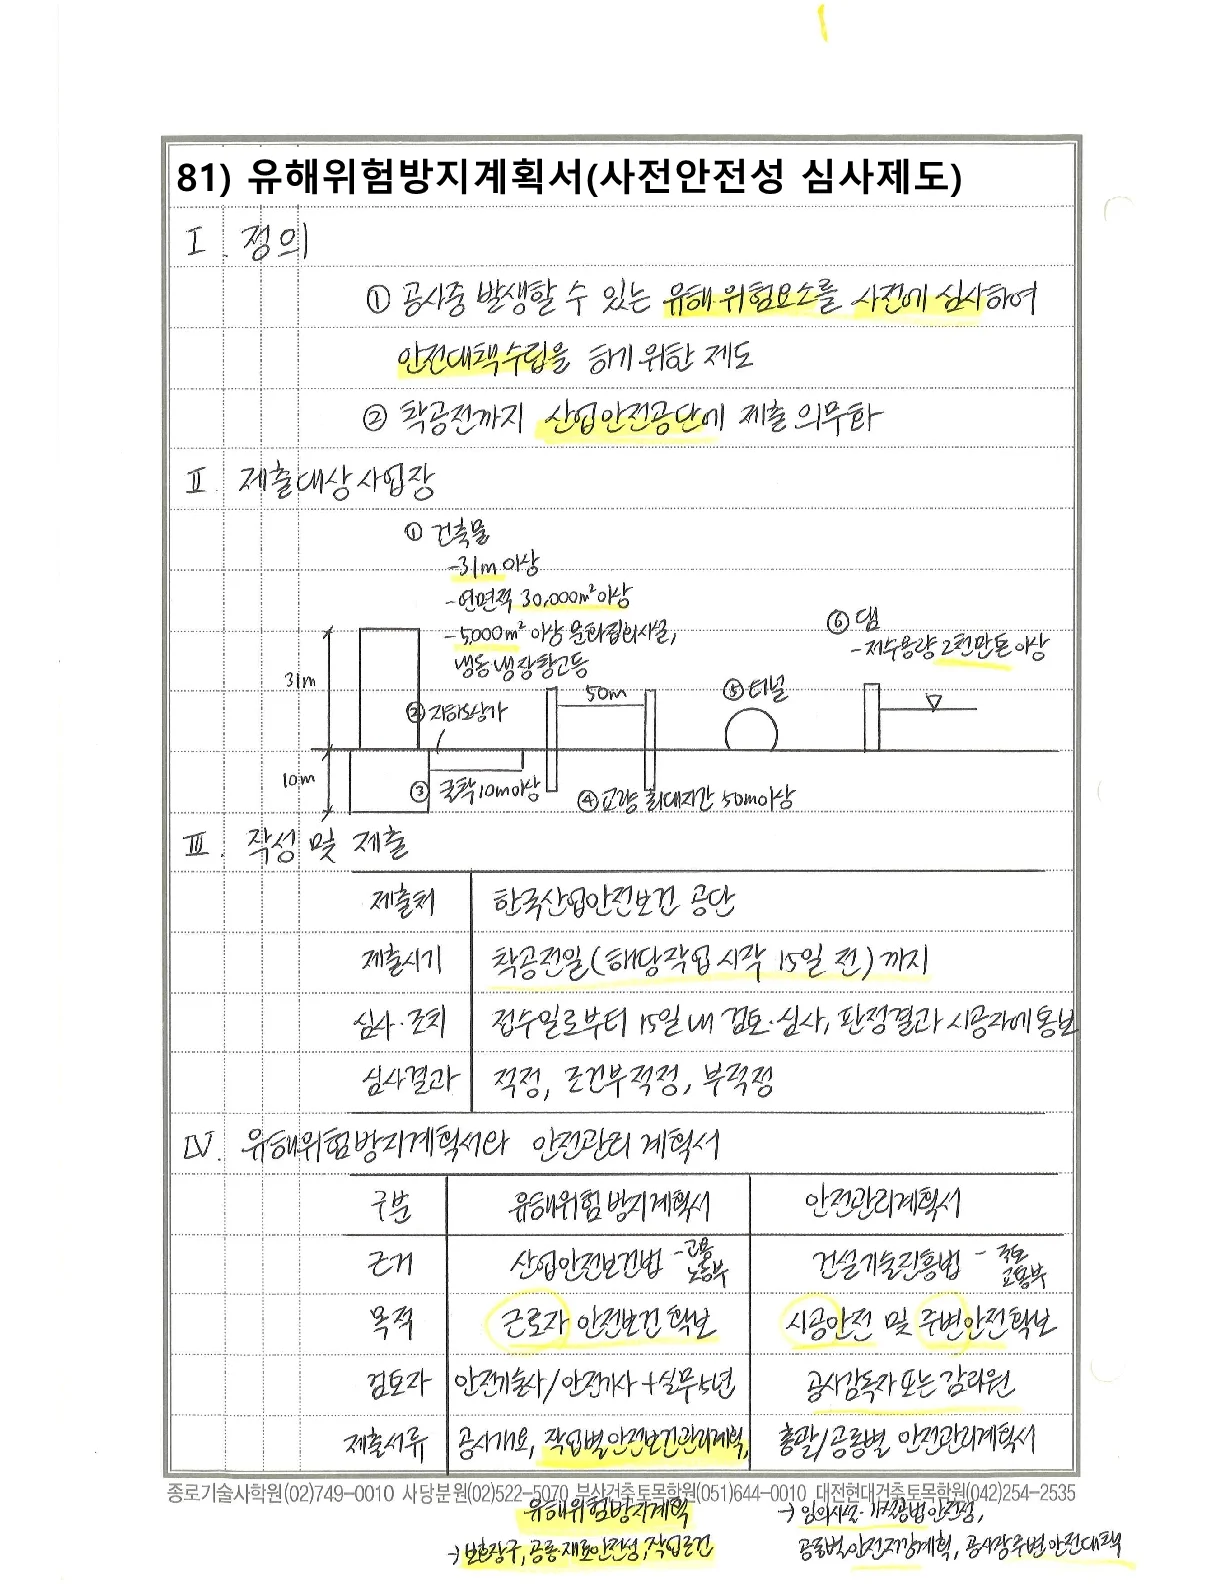 81) 유해위험방지계획서(사전안전성 심사제도)
I. 정의
① 공사중 발생할 수 있는 유해위험요소를 사전에 심사하여
안전대책수립을 하기 위한 제도
② 착공전까지 산업안전공단에 제출 의무화
II 제출대상사업장
① 건축물
-31m 이상
-연면적 30,000m² 이상
-5,000m² 이상 문화집회시설,
냉동냉장창고등
⑥ 댐
-저수용량 2천만톤 이상
31m
② 지하도상가
50m
⑤ 터널
10m
③ 굴착 10m이상
④ 교량 최대지간 50m이상
III. 작성 및 제출
제출처 한국산업안전보건 공단
제출시기 착공전일(해당작업 시작 15일 전)까지
심사·조치 접수일로부터 15일 내 검토·심사, 판정결과 시공자에 통보
심사결과 적정, 조건부적정, 부적정
IV. 유해위험방지계획서와 안전관리 계획서
구분 유해위험 방지계획서 안전관리계획서
근거 산업안전보건법 -고용노동부 건설기술진흥법 - 국토교통부
목적 근로자 안전보건 확보 시공안전 및 주변안전확보
검토자 안전기술사/안전기사+실무5년 공사감독자 또는 감리원
제출서류 공사개요, 작업별안전보건관리계획, 총괄/공종별 안전관리계획서
종로기술사학원(02)749-0010 사당분원(02)522-5070 부산건축토목학원(051)644-0010 대전현대건축토목학원(042)254-2535
유해위험방지계획
→ 보호장구, 공종재료안전성, 작업조건
→ 임의시설·가설공법안전성,
공종별안전저감계획, 공사장주변안전대책